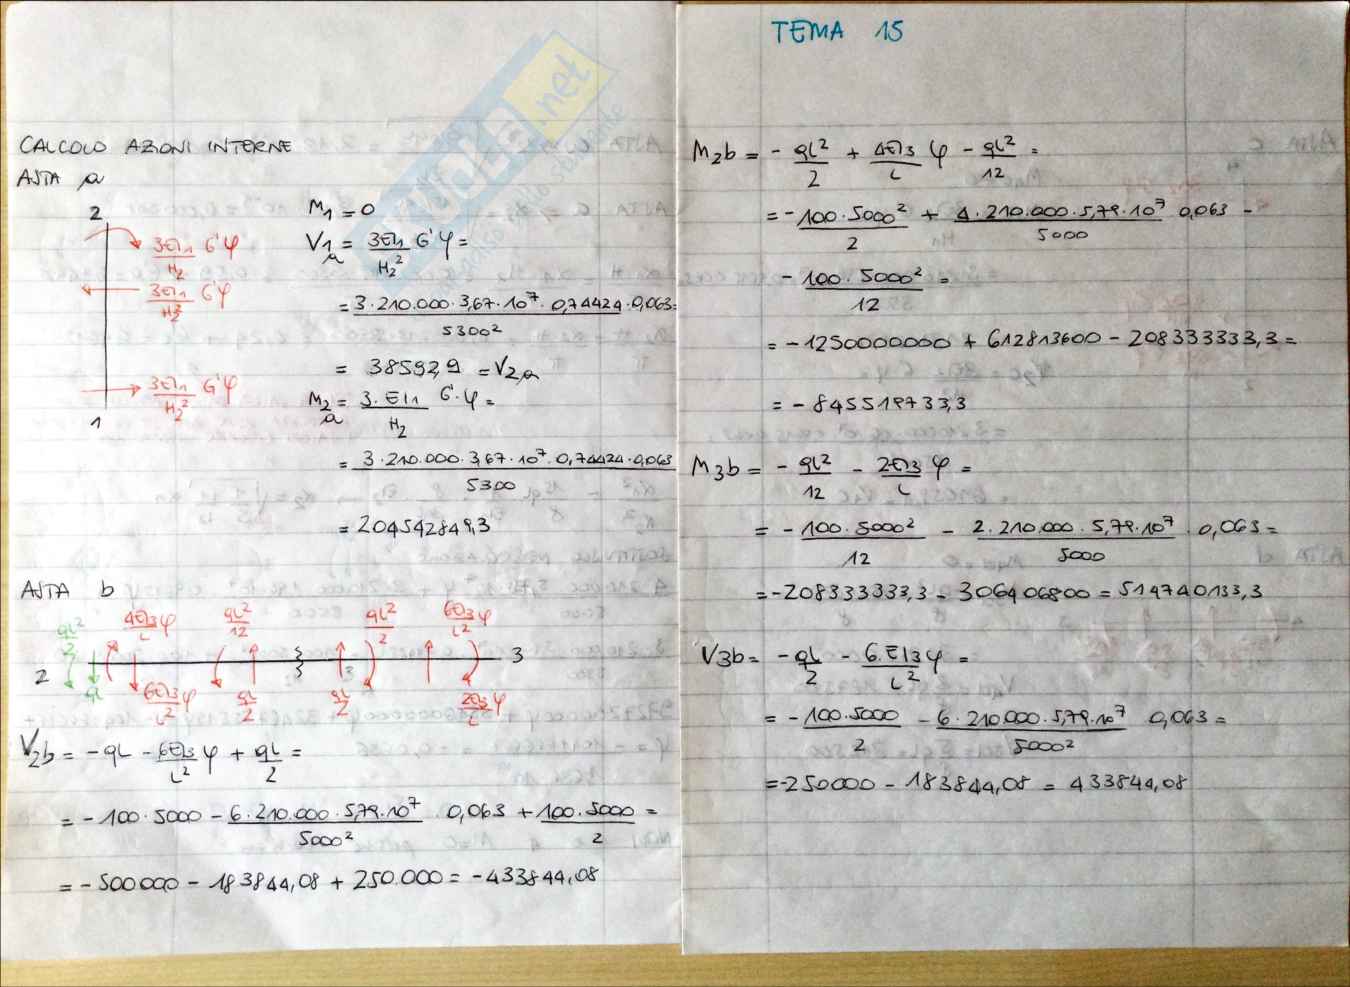 CALCOLO AZIONI INTERNE
ASTA a
2
3EI1 G'φ / H2
3EI1 G'φ / H2²
3EI1 G'φ / H2²
1
M1 = 0
V1a = 3EI1 / H2² G'φ =
= 3·210.000·3,67·10⁷·0,74424·0,063 / 5300² =
= 38592,9 = V2,a
M2a = 3·EI1 / H2 G'·φ =
= 3·210.000·3,67·10⁷·0,74424·0,063 / 5300
= 204542849,3
ASTA b
qL²/2 4EI3φ/L qL²/12 qL²/2 6EI3φ/L²
2 3 3
qL 6EI3φ/L² qL/2 qL/2 2EI3φ/L
V2b = -qL - 6EI3/L² φ + qL/2 =
= -100·5000 - 6·210.000·5,79·10⁷/5000² 0,063 + 100·5000/2 =
= -500000 - 183844,08 + 250.000 = -433844,08
TEMA 15
M2b = - qL²/2 + 4EI3/L φ - qL²/12 =
= -100·5000²/2 + 4·210.000·5,79·10⁷/5000 0,063 -
-100·5000²/12 =
= -1250000000 + 612813600 - 208333333,3 =
= -845519733,3
M3b = - qL²/12 - 2EI3/L φ =
= -100·5000²/12 - 2·210.000·5,79·10⁷/5000 · 0,063 =
= -208333333,3 - 306406800 = 514740133,3
V3b = -qL/2 - 6·EI3/L² φ =
= -100·5000/2 - 6·210.000·5,79·10⁷/5000² 0,063 =
= -250000 - 183844,08 = 433844,08